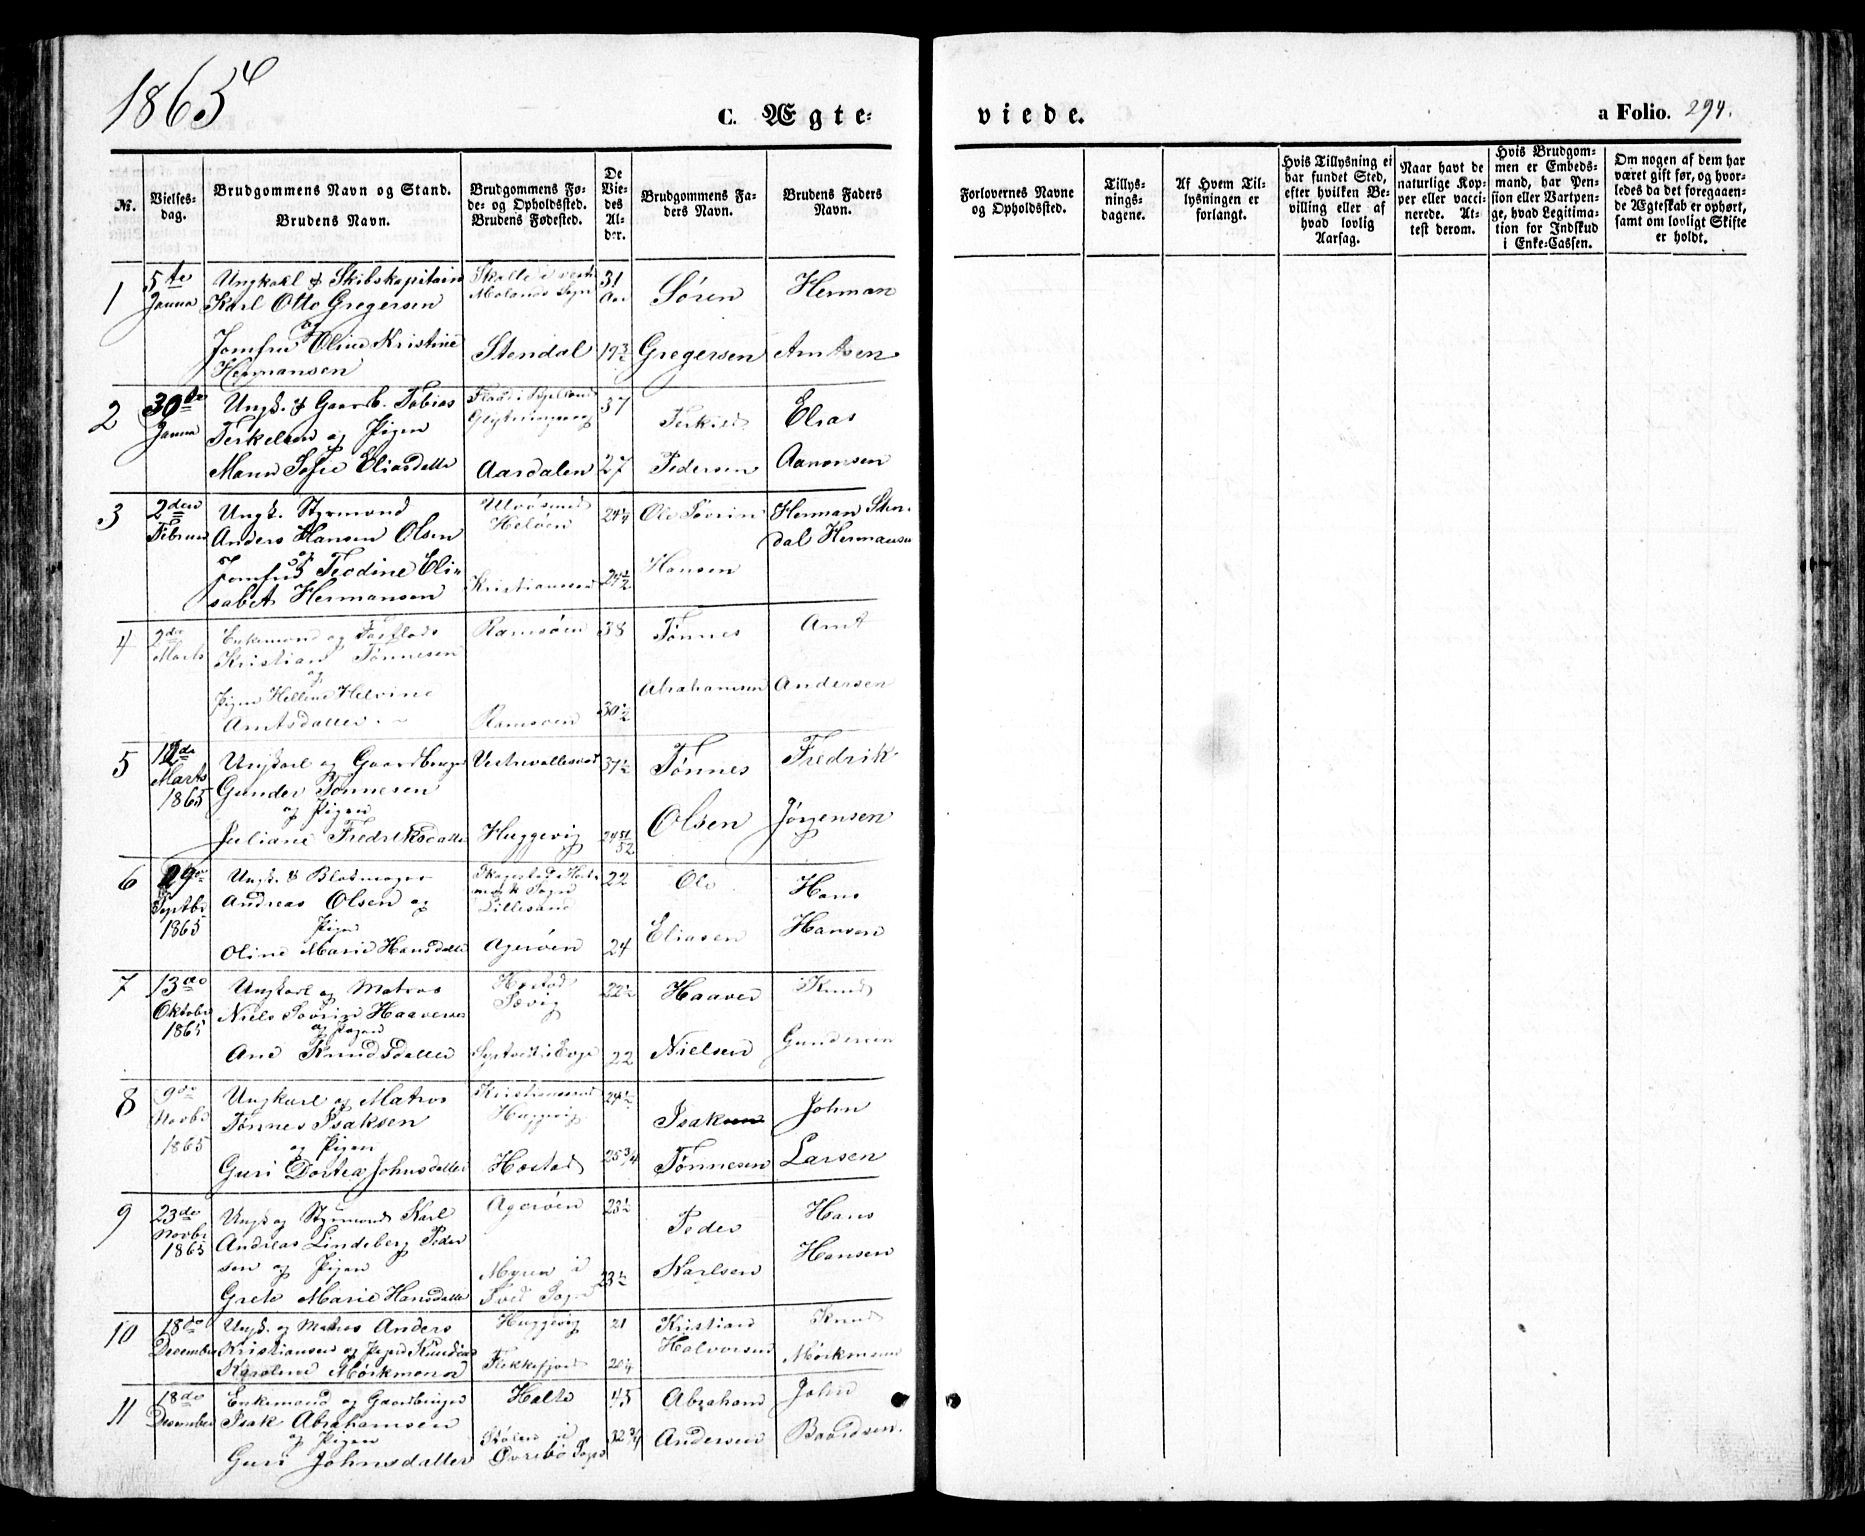 1865
C. Ægte-
viede.
a Folio. 294.
№.
Vielses-
dag.
Brudgommens Navn og Stand.
Brudens Navn.
Brudgommens Fø-
de- og Opholdssted.
Brudens Fødested.
De
Vie-
des
Al-
der.
Brudgommens Fa-
ders Navn.
Brudens Faders
Navn.
Forlovernes Navne
og Opholdssted.
Tillys-
nings-
dagene.
Af Hvem Til-
lysningen er
forlangt.
Hvis Tillysning ei
har fundet Sted,
efter hvilken Be-
villing eller af
hvad lovlig
Aarsag.
Naar havt de
naturlige Kop-
per eller vacci-
nerede. At-
test derom.
Hvis Brudgom-
men er Embeds-
mand, har Pen-
sion eller Vartpen-
ge, hvad Legitima-
tion for Indskud
i Enke-Cassen.
Om nogen af dem har
været gift før, og hvor-
ledes da det foregaaen-
de Ægteskab er ophørt,
samt om lovligt Skifte
er holdt.
1
5te
Janua
Ungkarl & Skibskapitain
Karl Otto Gregersen
og
Jomfru Oline Kristine
Hermansen
Molands Sogn
Stendal
31
Aar
19
Søren
Gregersen
Herman
Arntsen
2
30te
Janua
Ungk. & Gaardb. Tobias
Terkelsen og Pigen
Maren Sofie Eliasdatter
Aardalen
37
27
Terkild
Pedersen
Elias
Aanonsen
3
2den
Februar
Ungk. Styrmand
Anders Hansen Olsen
og
Jomfru Teodine Eli-
sabet Hermansen
Ulvøsund
Heløen
Kristianssand
24¼
24½
Ole Sovrin
Hansen
Herman Sten-
dal Hermansen
4
2den
Marts
Enkemand og
Kristian Tønnesen
og
Pigen Helline Helvine
Arntsdatter
Ramsøen
Ramsøen
38
30½
Tønnes
Abrahamsen
Arnt
Andersen
5
12de
Marts
1865
Ungkarl og Gaardbruger
Gunder Tønnesen
og Pigen
Juliane Fredriksdatter
Vestrevallesverd
Huggevig
31½
24 51/52
Tønnes
Olsen
Fredrik
Jørgensen
6
29de
Septbr
1865
Ungk. &
Andreas Olsen og
Pigen
Oline Marie Hansdatter
mark Sogn
Lillesand
Agerøen
22
24
Ole
Eliasen
Hans
Hansen
7
13de
Oktober
1865
Ungkarl og Matros
Niels Sovrin Haaversen
og Pigen
Ane Knudsdatter
Høstad
Sævig
22½
22
Haaver
Nielsen
Knud
Gundersen
8
9de
Novbr
1865
Ungkarl og Matros
Tønnes Isaksen
og Pigen
Guri Dortea Johnsdatter
Kristianssand
Huggevig
Høstad
24½
25¾
Isak
Tønnesen
John
Larsen
9
23de
Novbr
1865
Ungk. og Styrmand Karl
Andreas Lindeberg Peder
sen og Pigen
Grete Marie Hansdatter
Agerøen
Myren i
Tved Sogn
23½
23½
Peder
Karlsen
Hans
Hansen
10
18de
December
Ungk. og Matros Anders
Kristiansen og Pigen
Karoline Mørkmand
Huggevig
Flekkefjord
21
20¼
Kristian
Halvorsen
Knud
Mørkmand
11
18de
December
Enkemand og Gaardbruger
Isak Abrahamsen
og Pigen
Guri Johnsdatter
Holte
Stølen i
Øvrebø Sogn
45
32¾
Abraham
Andersen
John
Baardsen